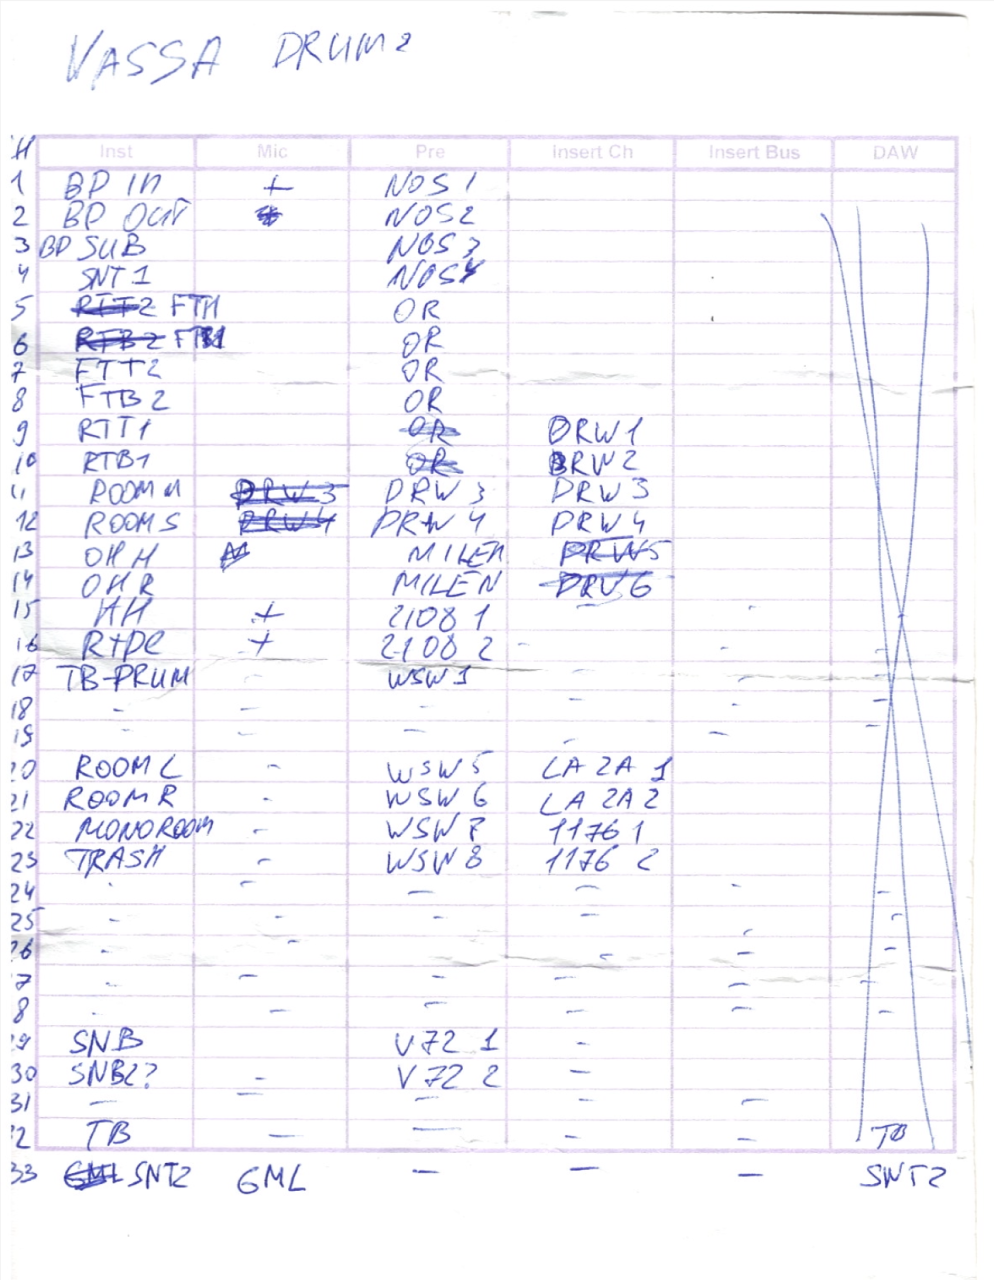 VASSA DRUMS
CH Inst Mic Pre Insert Ch Insert Bus DAW
1 BD IN + NOS 1
2 BD OUT NOS 2
3 BD SUB NOS 3
4 SNT 1 NOS 4
5 RTT2 FTT1 OR
6 RTB2 FTB1 OR
7 FTT2 OR
8 FTB2 OR
9 RTT1 OR DRW1
10 RTB1 OR DRW2
11 ROOM M DRW3 DRW 3 DRW3
12 ROOM S DRW4 DRW 4 DRW4
13 OH H MILEN DRW5
14 OH R MILEN DRW6
15 HH + 2108 1
16 RIDE + 2108 2 - - -
17 TB-DRUM - WSW1 - - -
18 - - - - - -
19 - - - - - -
20 ROOM L - WSW 5 LA 2A 1
21 ROOM R - WSW 6 LA 2A 2
22 MONOROOM - WSW 7 1176 1
23 TRASH - WSW 8 1176 2
24 - - - - - -
25 - - - - - -
26 - - - - -
7 - - - - -
8 - - - - - -
9 SNB V72 1 -
30 SNB2? - V72 2 -
31 - - - - -
2 TB - - - - TB
33 GML SNT2 GML - - - SNT2